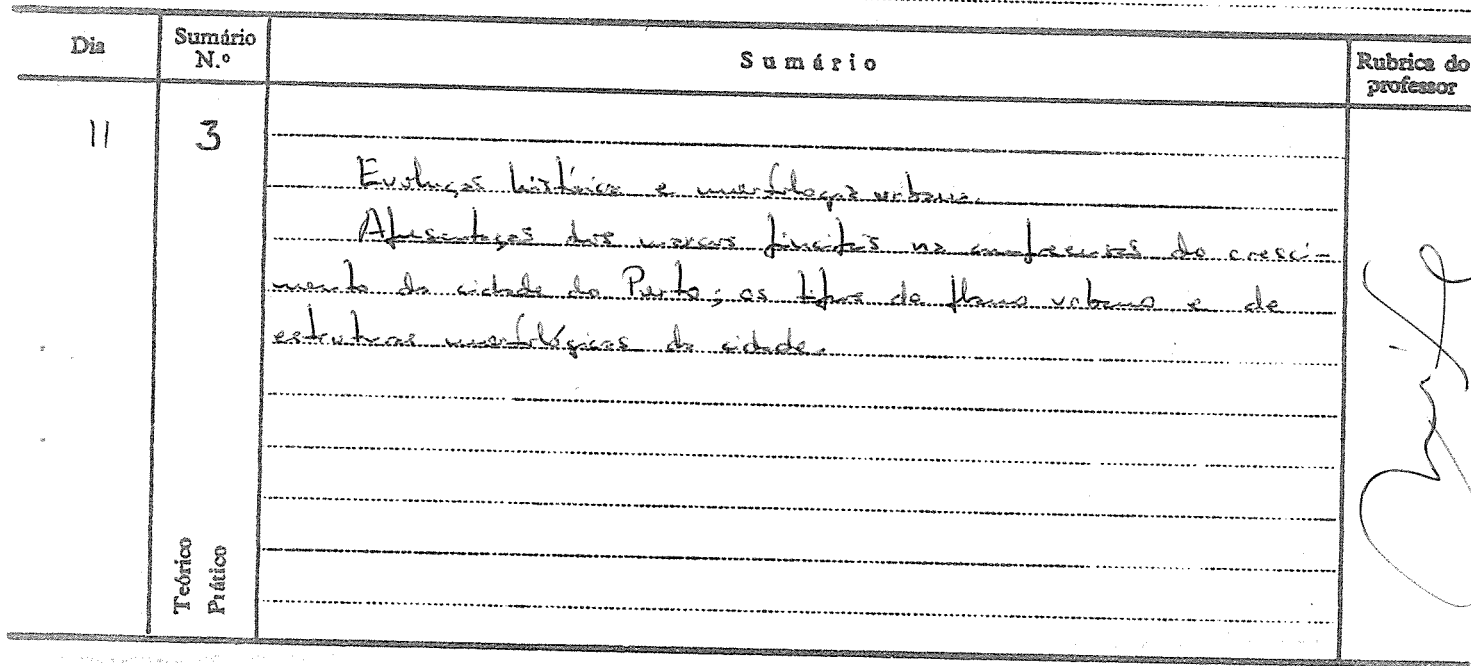 Dia
Sumário N.º
Sumário
Rubrica do professor
11
3
Evolução histórica e morfologia urbana.
Apresentação dos marcos principais na compreensão do cresci-
mento da cidade do Porto; os tipos de planos urbanos e de
estruturas morfológicas da cidade.
Teórico
Prático